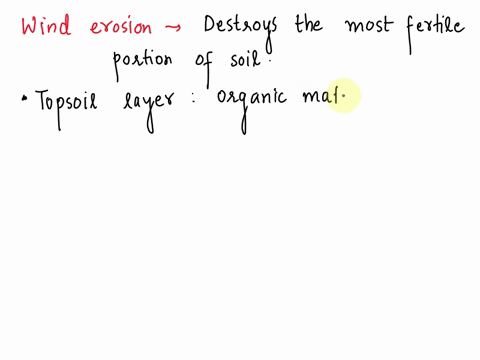 Wind erosion → Destroys the most fertile
portion of soil.
• Topsoil layer : Organic mat